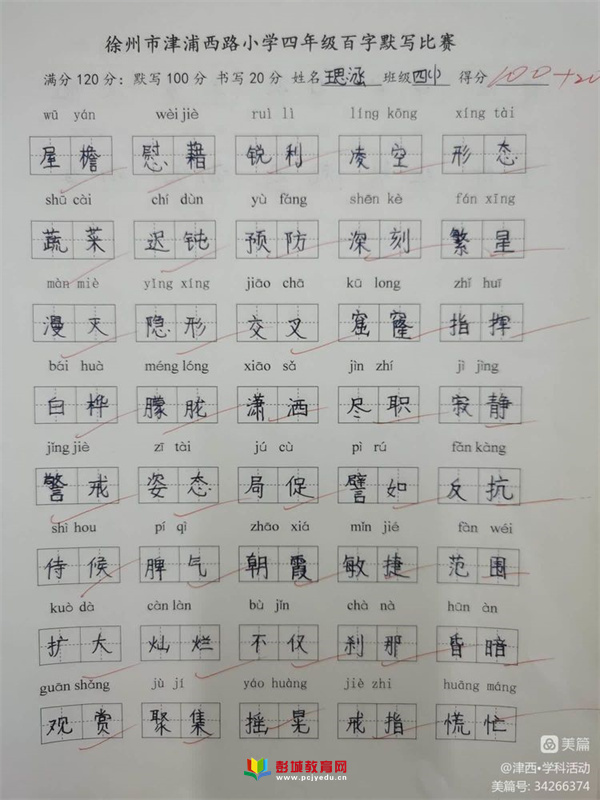 徐州市津浦西路小学四年级百字默写比赛
满分120分：默写100分 书写20分 姓名王思涵 班级四(1) 得分100+20
wū yán wèi jiè ruì lì líng kōng xíng tài
屋檐 慰藉 锐利 凌空 形态
shū cài chí dùn yù fáng shēn kè fán xīng
蔬菜 迟钝 预防 深刻 繁星
màn miè yǐng xíng jiāo chā kū long zhǐ huī
漫灭 隐形 交叉 窟窿 指挥
bái huà méng lóng xiāo sǎ jìn zhí jì jìng
白桦 朦胧 潇洒 尽职 寂静
jǐng jiè zī tài jú cù pì rú fǎn kàng
警戒 姿态 局促 譬如 反抗
shì hou pí qì zhāo xiá mǐn jié fàn wéi
侍候 脾气 朝霞 敏捷 范围
kuò dà càn làn bù jǐn chà nà hūn àn
扩大 灿烂 不仅 刹那 昏暗
guān shǎng jù jí yáo huàng jiè zhi huāng máng
观赏 聚集 摇晃 戒指 慌忙
美篇
彭城教育网
www.pcjyedu.cn
@津西•学科活动
美篇号: 34266374